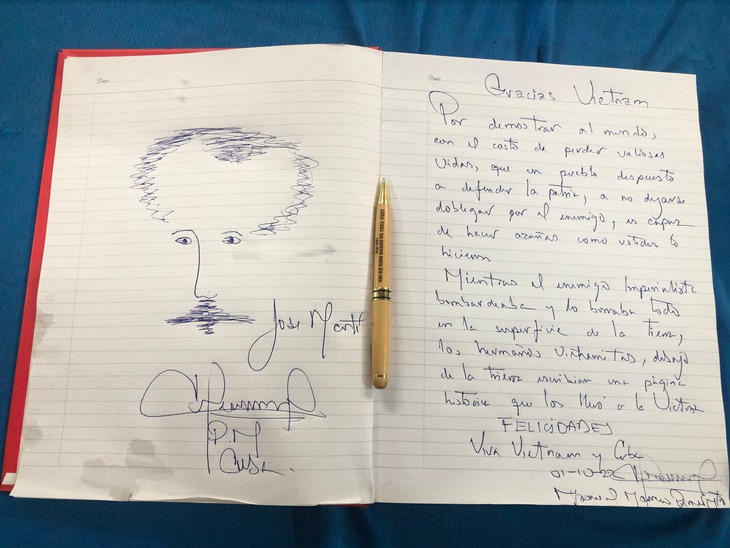 Date
Jose Martí
P.M
Cuba.
Date
Gracias Vietnam
Por demostrar al mundo,
con el costo de perder valiosas
vidas, que un pueblo dispuesto
a defender la patria, a no dejarse
doblegar por el enemigo, es capaz
de hacer azañas como ustedes lo
hicieron
Mientras el enemigo Imperialista
bombardeaba y lo borraba todo
en la superficie de la tierra,
los hermanos Vietnamitas, debajo
de la tierra escribian una página
histórica que los llevó a la Victoria
FELICIDADES
Viva Vietnam y Cuba
01-10-22
Manuel Marrero